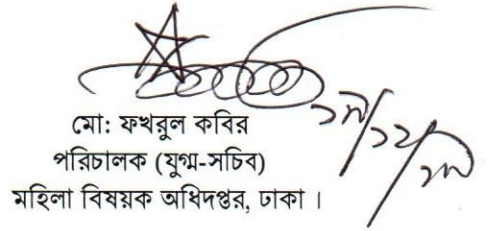 মো: ফখরুল কবির
পরিচালক (যুগ্ম-সচিব)
মহিলা বিষয়ক অধিদপ্তর, ঢাকা ।